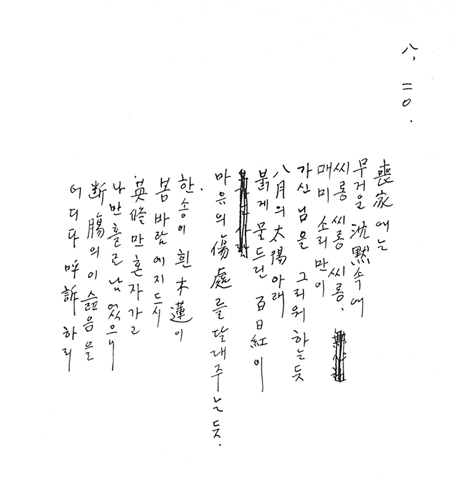 八, 二〇.
喪家에는
무거운 沈黙속에
씨롱 씨롱 씨롱.
매미 소리만이
가신 님을 그리워 하는듯
八月의 太陽아래
붉게 물드던 百日紅이
마음의 傷處를 달래주는 듯.
한송이 흰 木蓮이
봄 바람에지드시
만혼자가고
나만 홀로 남었으니
断腸의 이 슬음을
어디다 呼訴 하리